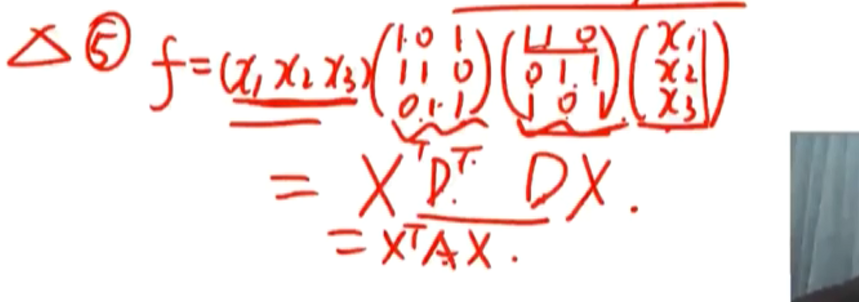 △ ⑤ f=(x₁ x₂ x₃)(1 0 1 / 1 1 0 / 0 1 1)(1 1 0 / 0 1 1 / 1 0 1)(x₁ / x₂ / x₃)
= XᵀDᵀ DX.
= XᵀAX.